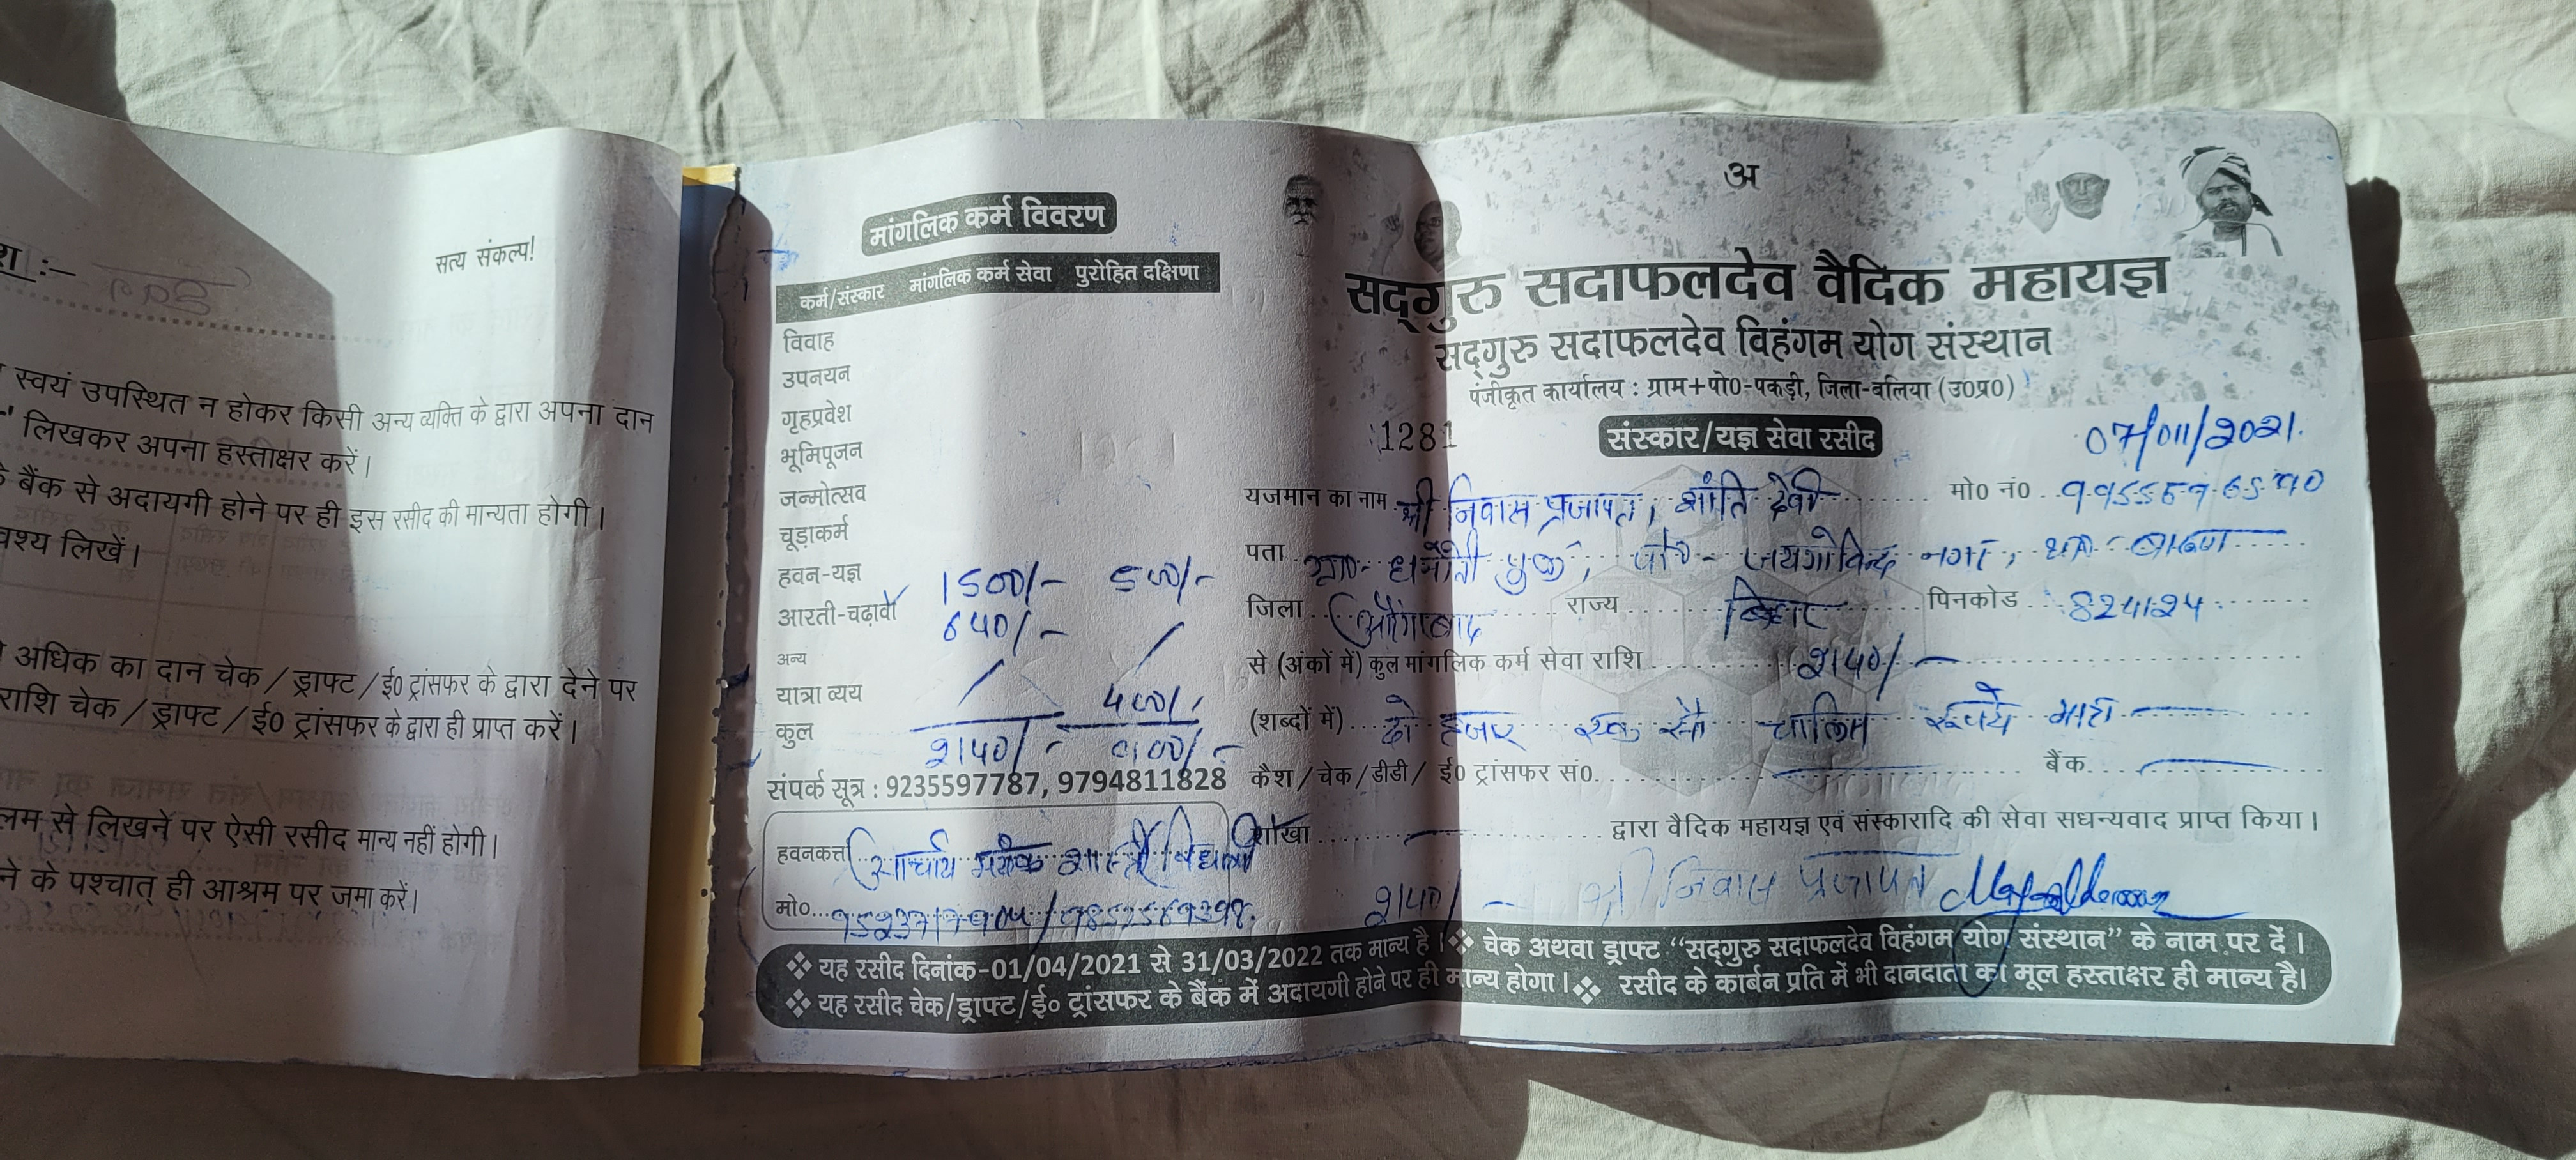 सत्य संकल्प!
स्वयं उपस्थित न होकर किसी अन्य व्यक्ति के द्वारा अपना दान
लिखकर अपना हस्ताक्षर करें।
बैंक से अदायगी होने पर ही इस रसीद की मान्यता होगी।
लिखें।
अधिक का दान चेक / ड्राफ्ट / ई0 ट्रांसफर के द्वारा देने पर
राशि चेक / ड्राफ्ट / ई0 ट्रांसफर के द्वारा ही प्राप्त करें।
से लिखने पर ऐसी रसीद मान्य नहीं होगी।
के पश्चात् ही आश्रम पर जमा करें।
मांगलिक कर्म विवरण
कर्म/संस्कार मांगलिक कर्म सेवा पुरोहित दक्षिणा
विवाह
उपनयन
गृहप्रवेश
भूमिपूजन
जन्मोत्सव
चूड़ाकर्म
हवन-यज्ञ 1500/- 500/-
आरती-चढ़ावा 640/-
अन्य
यात्रा व्यय 400/-
कुल 2140/-
संपर्क सूत्र : 9235597787, 9794811828
हवनकर्त्ता आचार्य
मो०
अ
सद्गुरु सदाफलदेव वैदिक महायज्ञ
सद्गुरु सदाफलदेव विहंगम योग संस्थान
पंजीकृत कार्यालय : ग्राम+पो0-पकड़ी, जिला-बलिया (उ0प्र0)
1281 संस्कार/यज्ञ सेवा रसीद 07/011/2021.
यजमान का नाम श्री निवास प्रजापत, शांति देवी मो0 नं0
पता जयगोविन्द नगर,
जिला औरंगाबाद राज्य बिहार पिनकोड 824124
से (अंकों में) कुल मांगलिक कर्म सेवा राशि 2140/-
(शब्दों में) दो हजार एक सौ चालिस रूपये मात्र
कैश / चेक / डीडी / ई0 ट्रांसफर सं0. बैंक
शाखा द्वारा वैदिक महायज्ञ एवं संस्कारादि की सेवा सधन्यवाद प्राप्त किया।
2140/- श्री निवास प्रजापत
❖ यह रसीद दिनांक-01/04/2021 से 31/03/2022 तक मान्य है। ❖ चेक अथवा ड्राफ्ट “सद्गुरु सदाफलदेव विहंगम योग संस्थान” के नाम पर दें।
❖ यह रसीद चेक/ड्राफ्ट/ई० ट्रांसफर के बैंक में अदायगी होने पर ही मान्य होगा। ❖ रसीद के कार्बन प्रति में भी दानदाता का मूल हस्ताक्षर ही मान्य है।